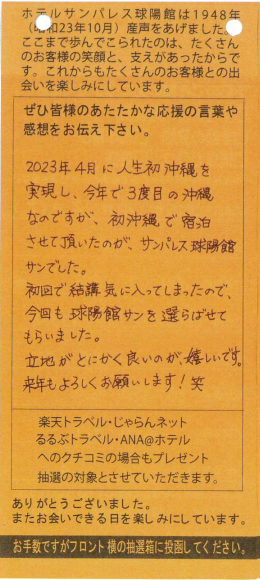 ホテルサンパレス球陽館は1948年
(昭和23年10月)産声をあげました。
ここまで歩んでこられたのは、たくさん
のお客様の笑顔と、支えがあったからで
す。これからもたくさんのお客様との出
会いを楽しみにしています。
ぜひ皆様のあたたかな応援の言葉や
感想をお伝え下さい。
2023年4月に人生初沖縄を
実現し、今年で3度目の沖縄
なのですが、初沖縄で宿泊
させて頂いたのが、サンパレス球陽館
サンでした。
初回で結講気に入ってしまったので、
今回も球陽館サンを選らばせて
もらいました。
立地がとにかく良いのが、嬉しいです。
来年もよろしくお願いします!笑
楽天トラベル・じゃらんネット
るるぶトラベル・ANA@ホテル
へのクチコミの場合もプレゼント
抽選の対象とさせていただきます。
ありがとうございました。
またお会いできる日を楽しみにしています。
お手数ですがフロント横の抽選箱に投函してください。